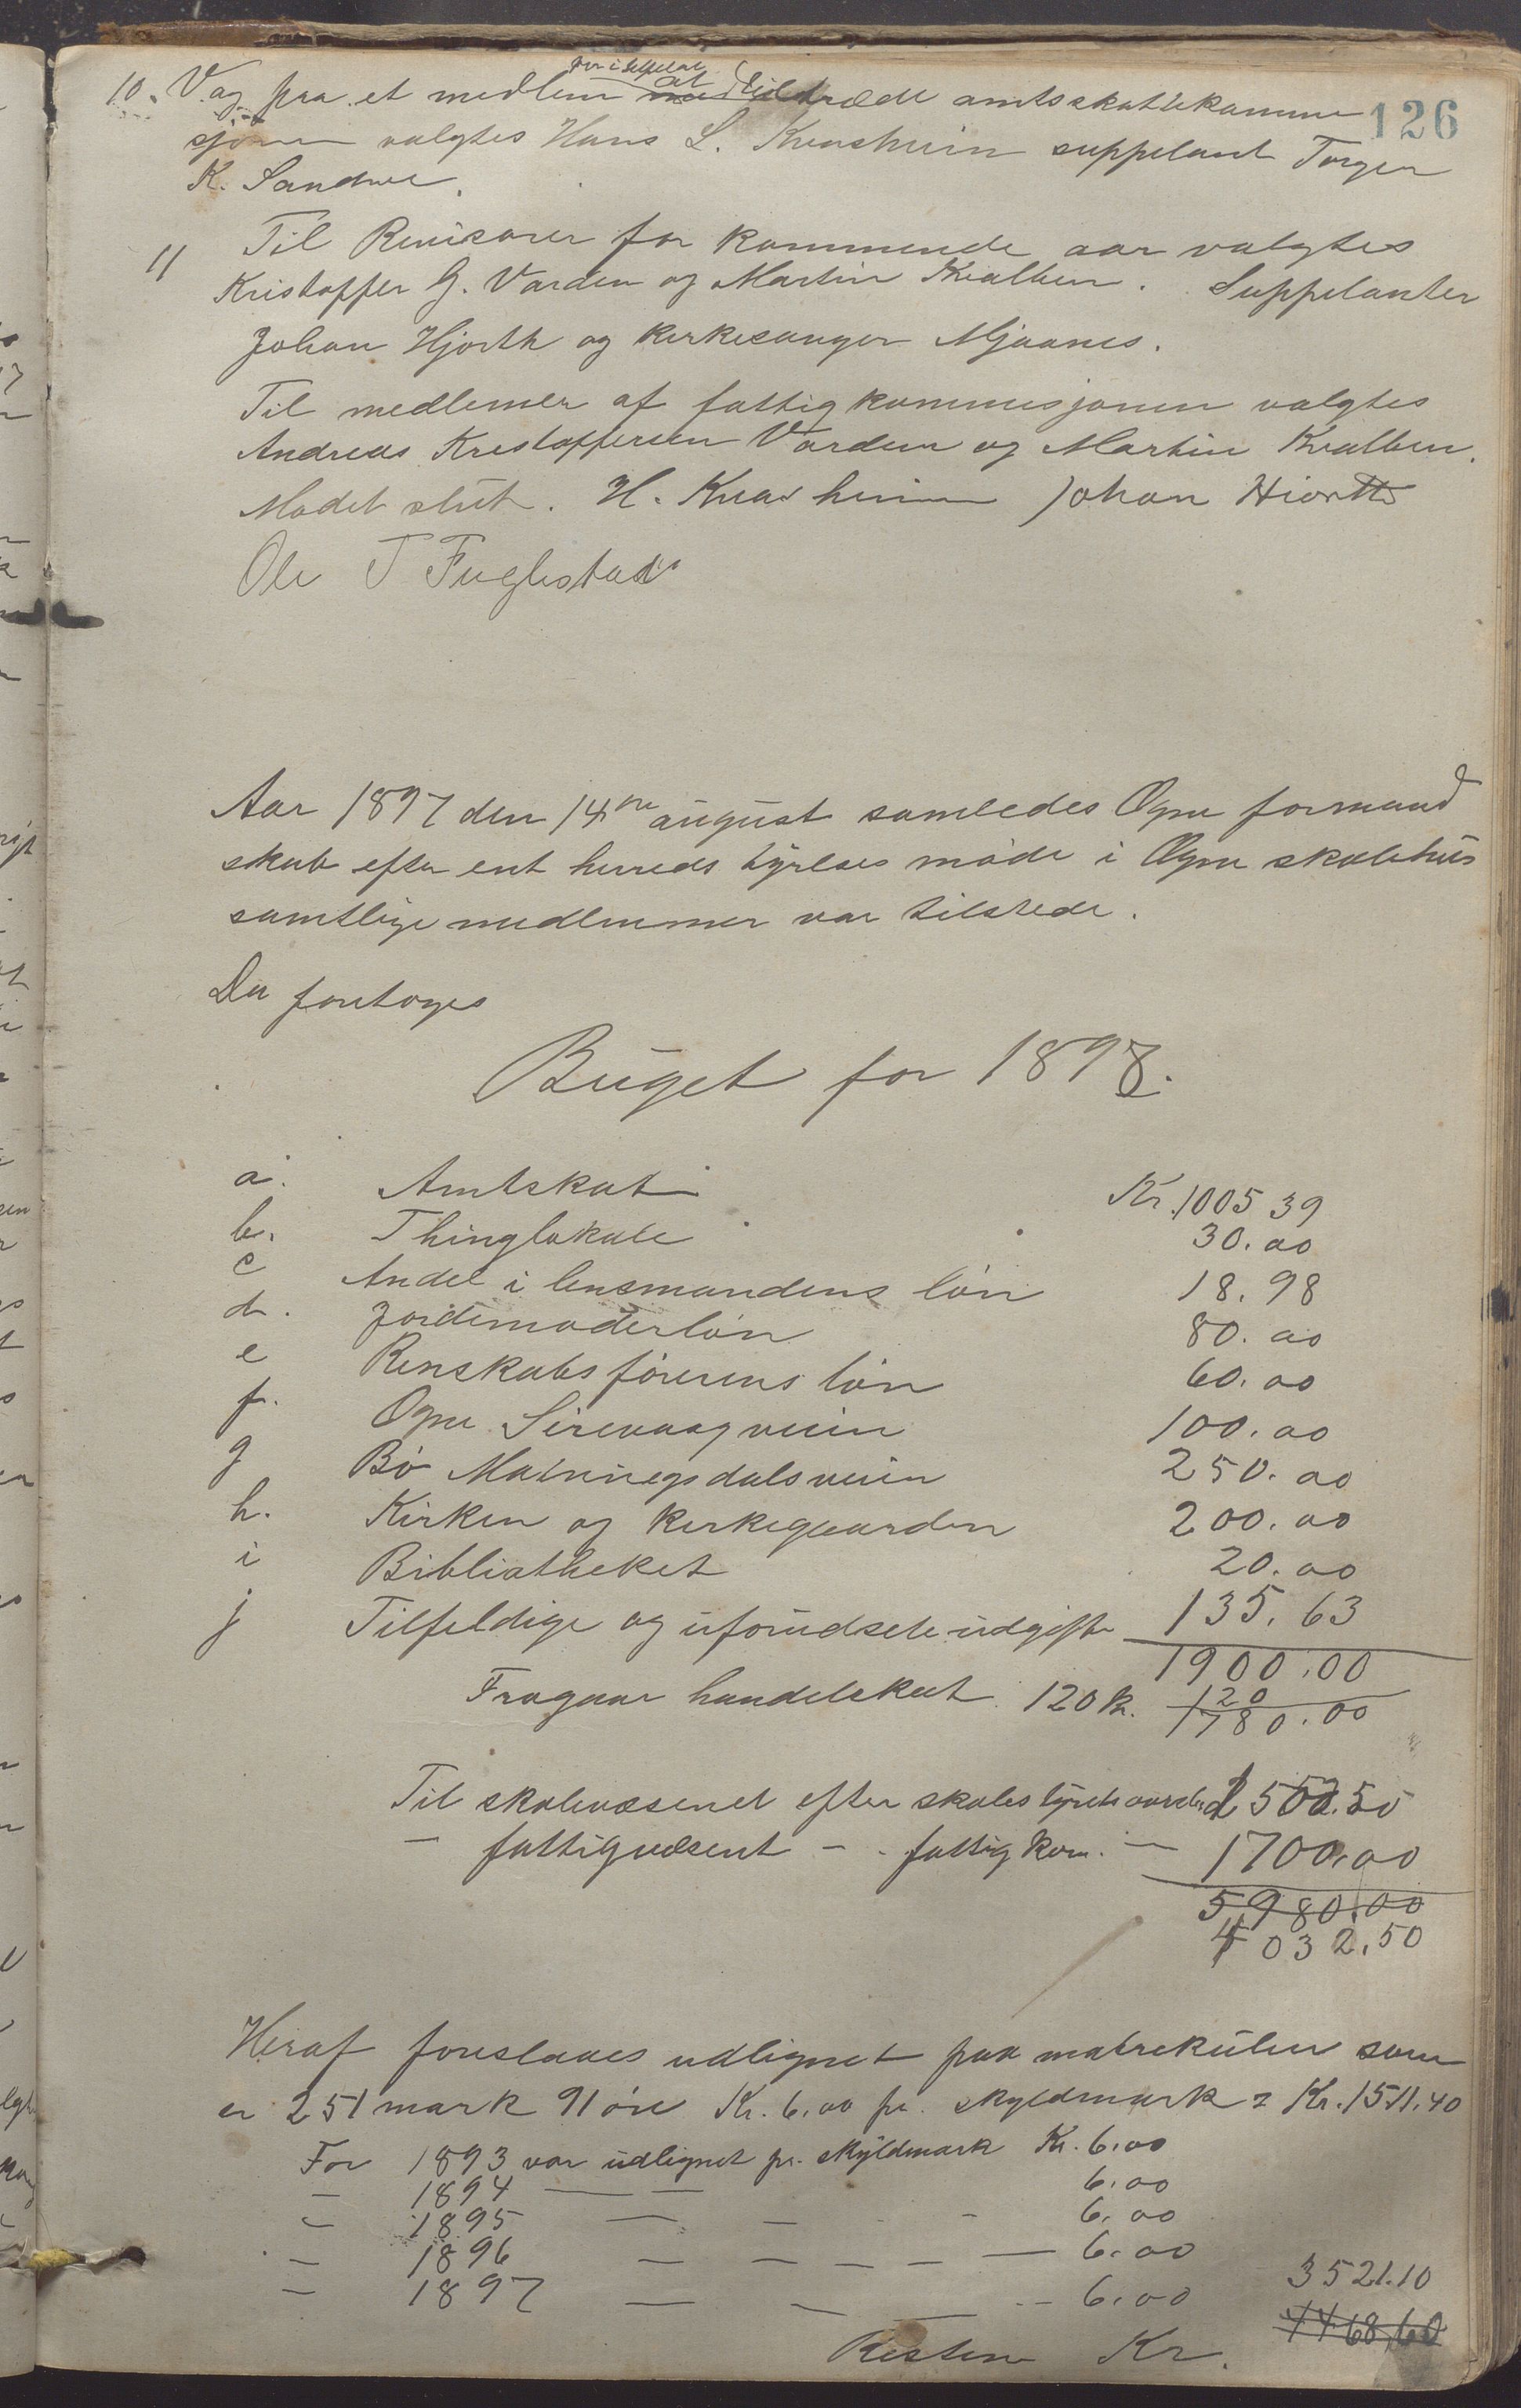 126
10. Valg paa et medlem at tiltræde amtsskattekommi
sjonen valgtes Hans L. Kvasheim suppelant Torger
K. Sandve.
11 Til Revisorer for kommende aar valgtes
Kristoffer G. Varden og Martin Kvalben. Suppelanter
Johan Hjorth og kirkesanger Mjaanes.
Til medlemer af fattigkommisjonen valgtes
Andreas Kristoffersen Varden og Martin Kvalben.
Mødet slut. H. Kvasheim Johan Hiorth
Ole T Fuglestad
Aar 1897 den 14de august samledes Ogne formand
skab efter ent herreds tyrelses møde i Ogne skolehus
samtlige medlemmer var tilstede.
Der foretoges
Buget for 1898.
a. Amtskat Kr. 1005 39
b. Thinglokale 30.00
c Andel i lensmandens løn 18.98
d. Jordemoderløn 80.00
e Renskabsførerens løn 60.00
f. Ogne Sirevaagveien 100.00
g Bø Matningsdalsveien 250.00
h. Kirken og kirkegaarden 200.00
i Bibliotheket 20.00
j Tilfeldige og uforudsete udgifter 135.63
1900.00
Fragaar handelskat 120 kr. 120
1780.00
Til skolevæsenet efter skolestyrets 552.50
- fattigvæsent - - fattigkom. - 1700.00
5980.00
4032.50
Heraf foreslaaes udlignet paa matrekulen som
er 251 mark 91 øre Kr. 6.00 pr. skyldmark = Kr. 1511.40
For 1893 var udlignet pr. skyldmark Kr. 6.00
- 1894 — — 6.00
- 1895 — — - 6.00
- 1896 — — — — — 6.00
- 1897 — — — - 6.00
3521.10
4468,60
Resten Kr.